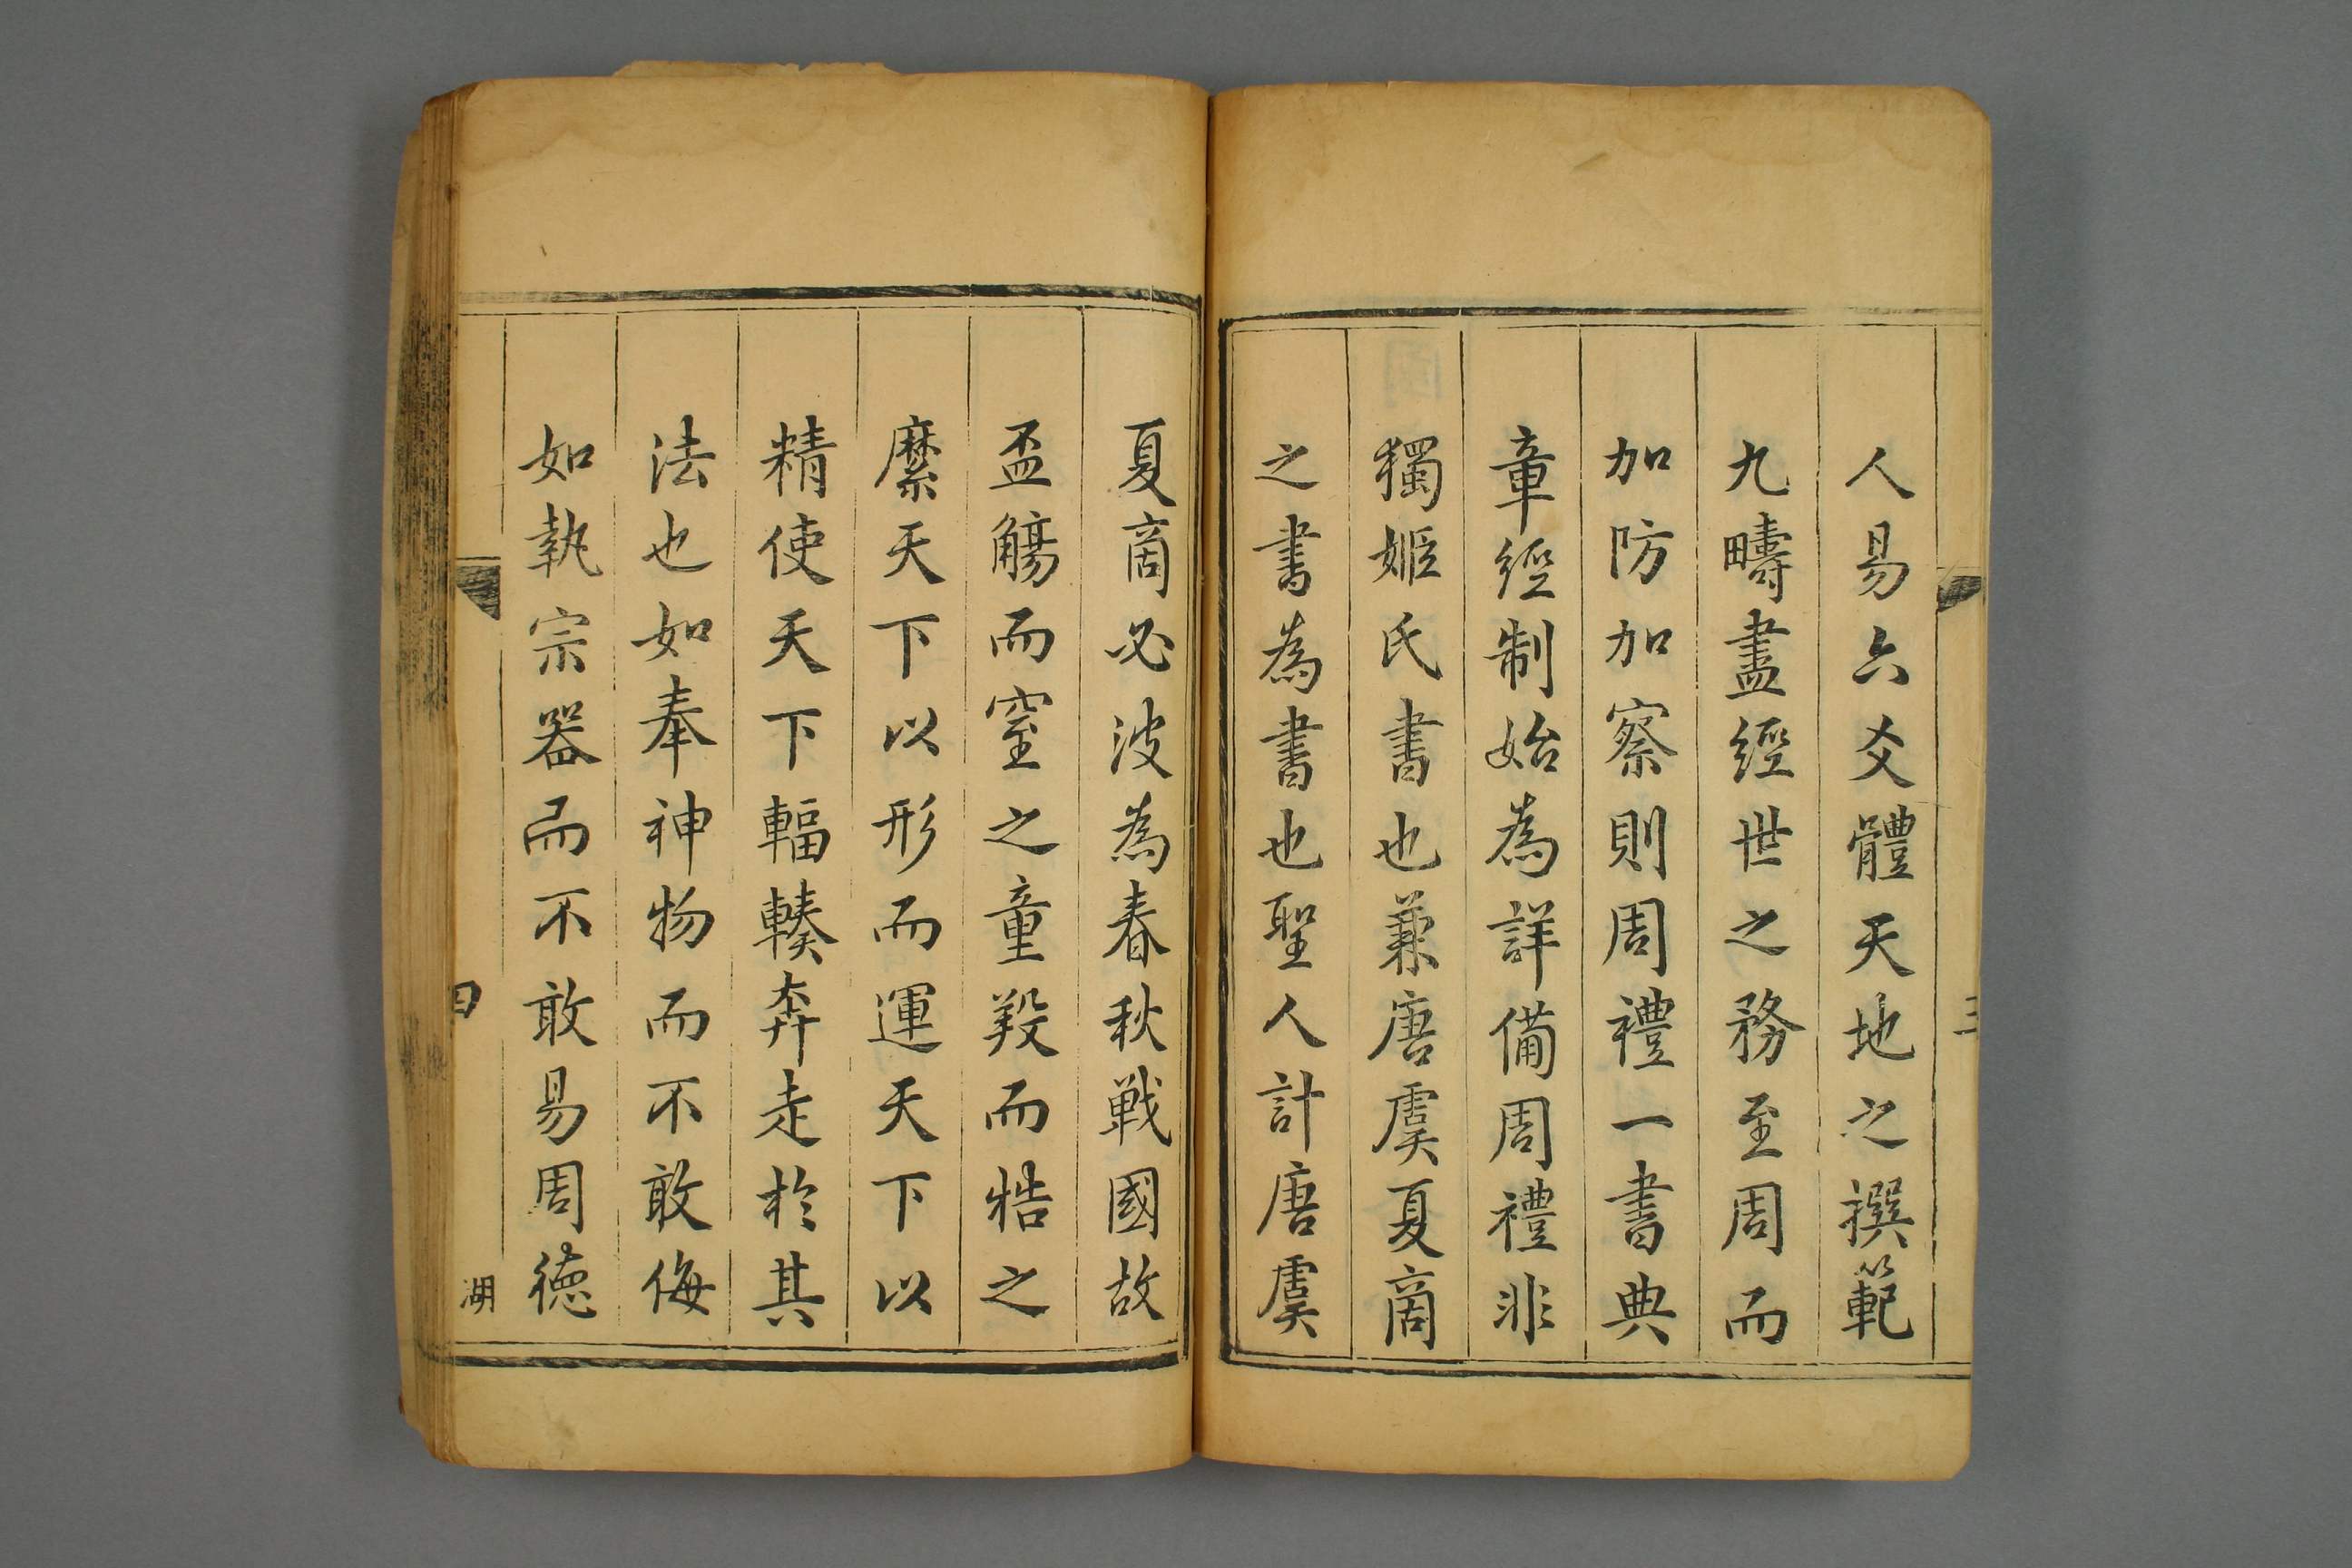 三
人易六爻體天地之撰範
九疇盡經世之務至周而
加防加察則周禮一書典
章經制始為詳備周禮非
獨姬氏書也兼唐虞夏商
之書為書也聖人計唐虞
夏商必波為春秋戰國故
盃觴而窒之童羖而牿之
縻天下以形而運天下以
精使天下輻輳奔走於其
法也如奉神物而不敢侮
如執宗器而不敢易周德
四
湖